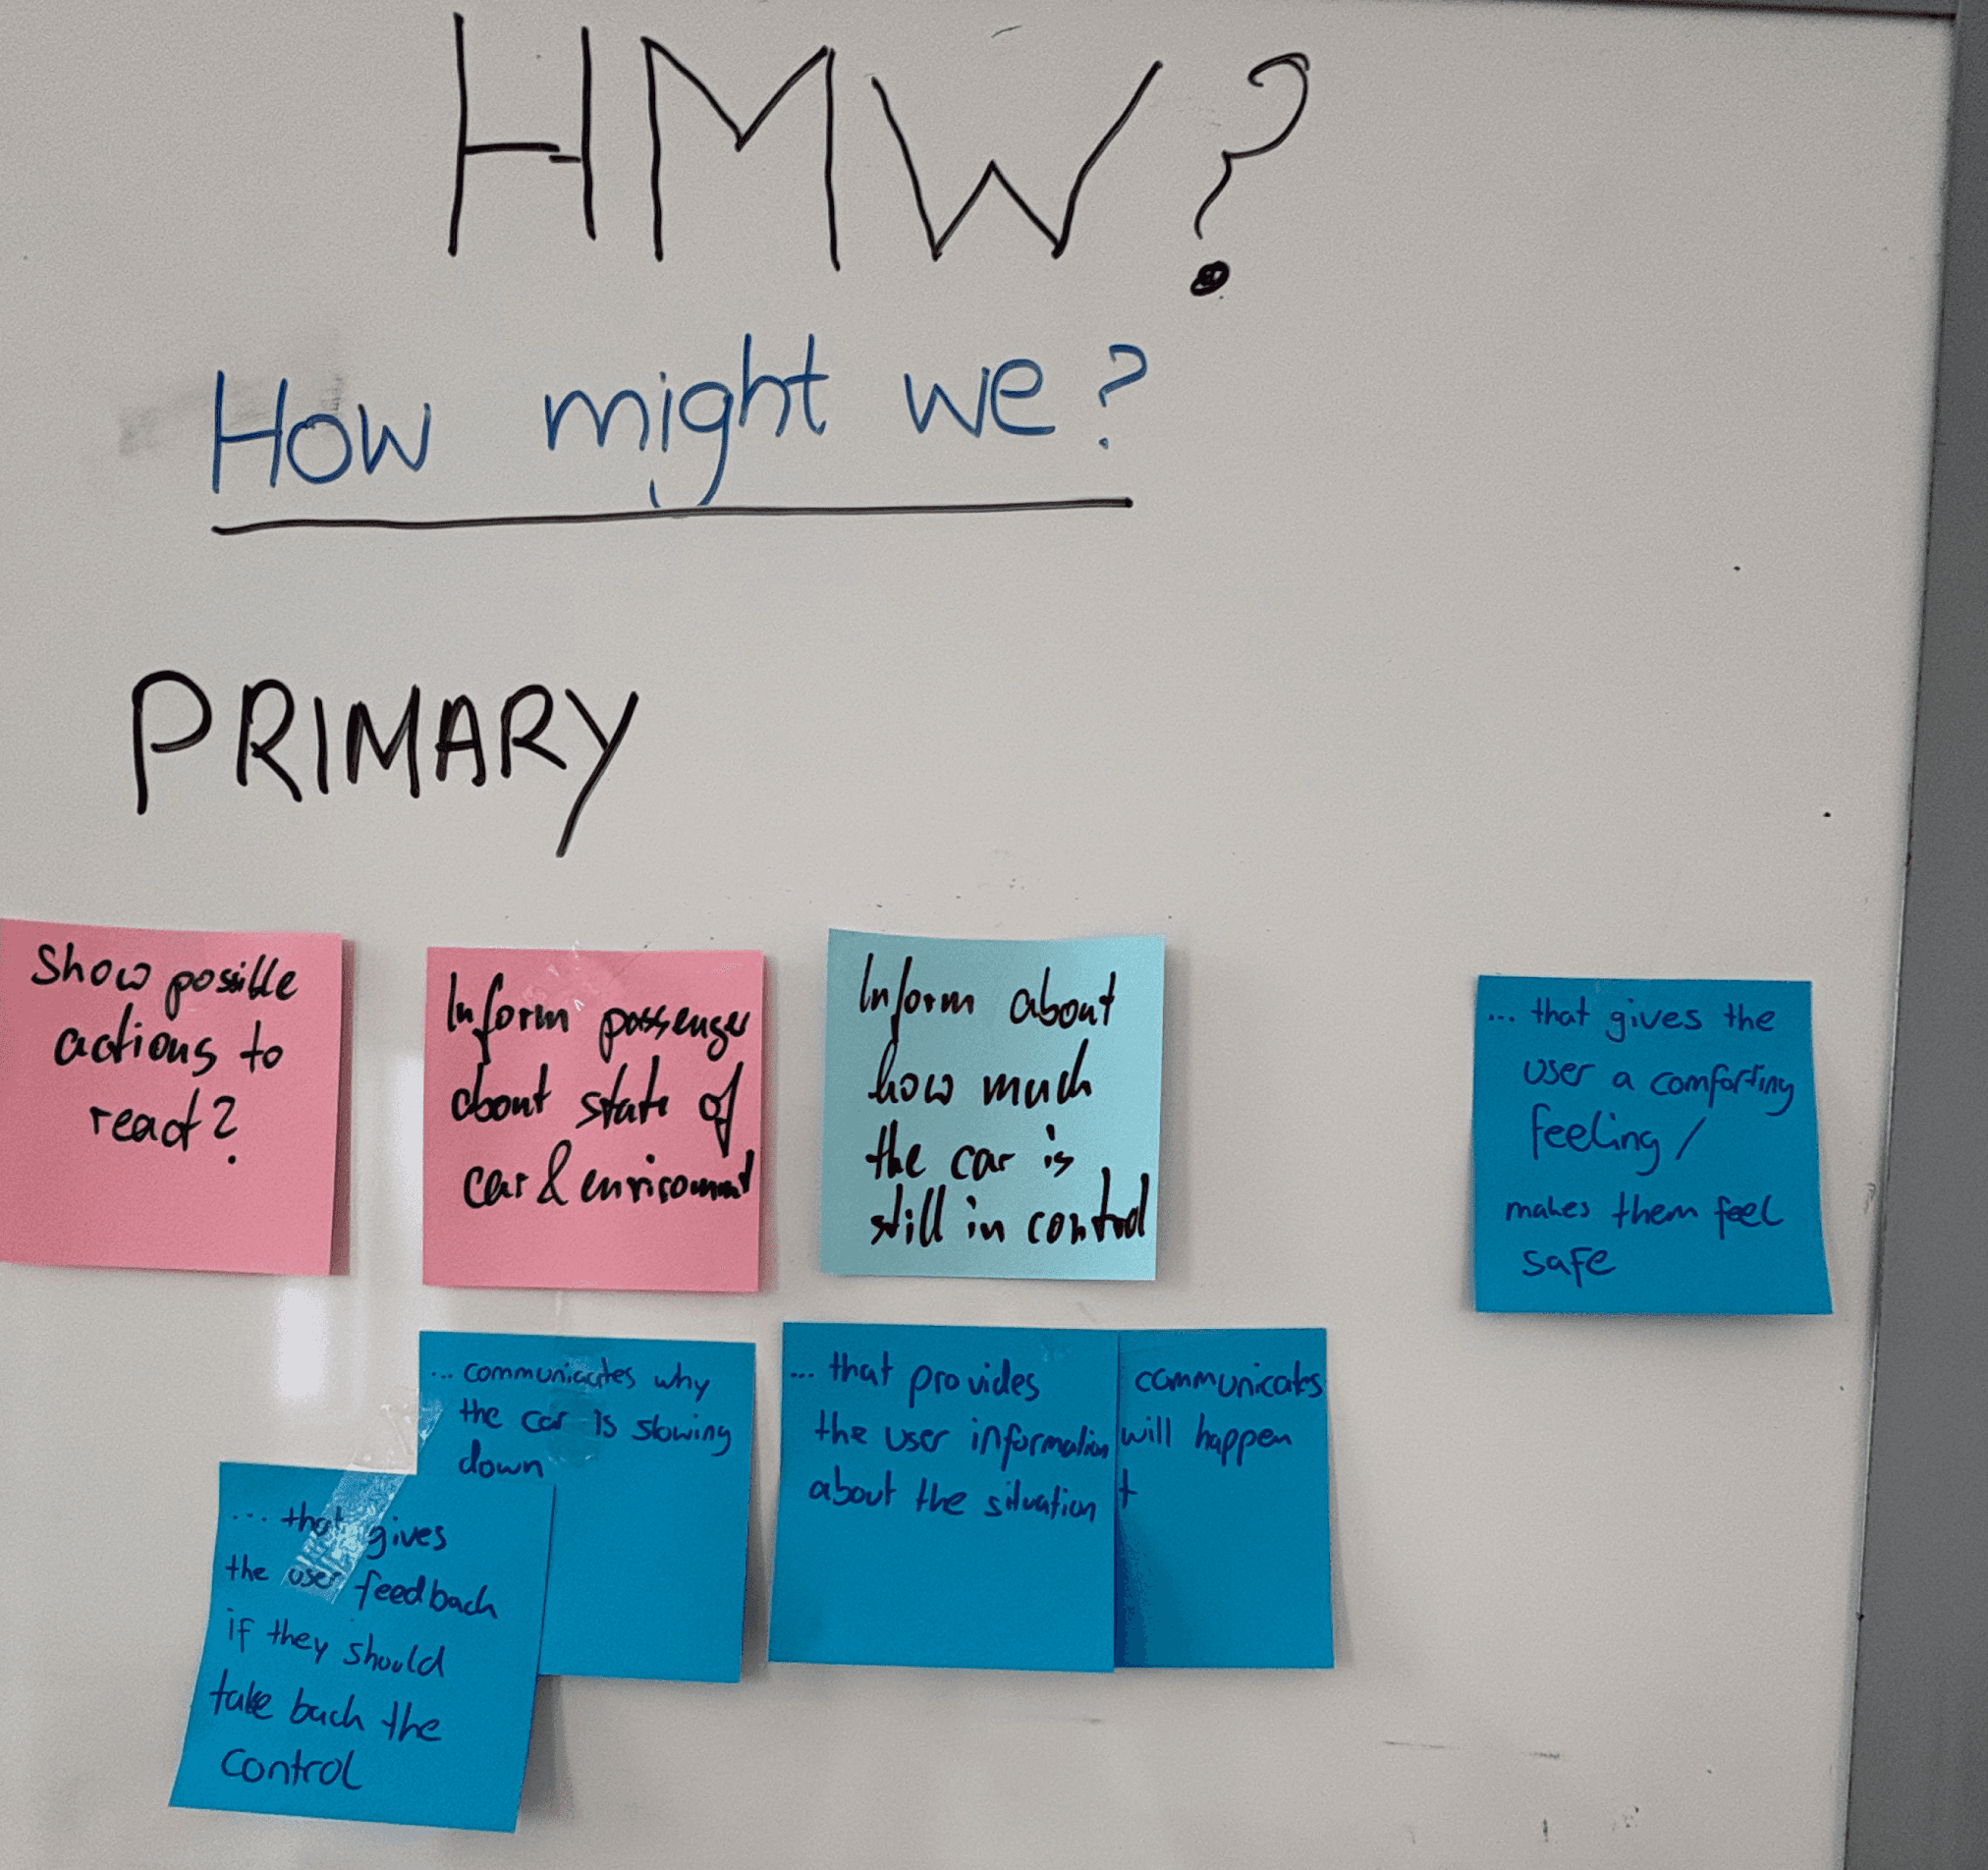 HMW?
How might we?
PRIMARY
Show possible
actions to
react?
Inform passenger
about state of
car & enviroment
Inform about
how much
the car is
still in control
... that gives the
user a comforting
feeling /
makes them feel
safe
... communicates why
the car is slowing
down
... that gives
the user feedback
if they should
take back the
control
... that provides
the user information
about the situation
communicates
will happen
t